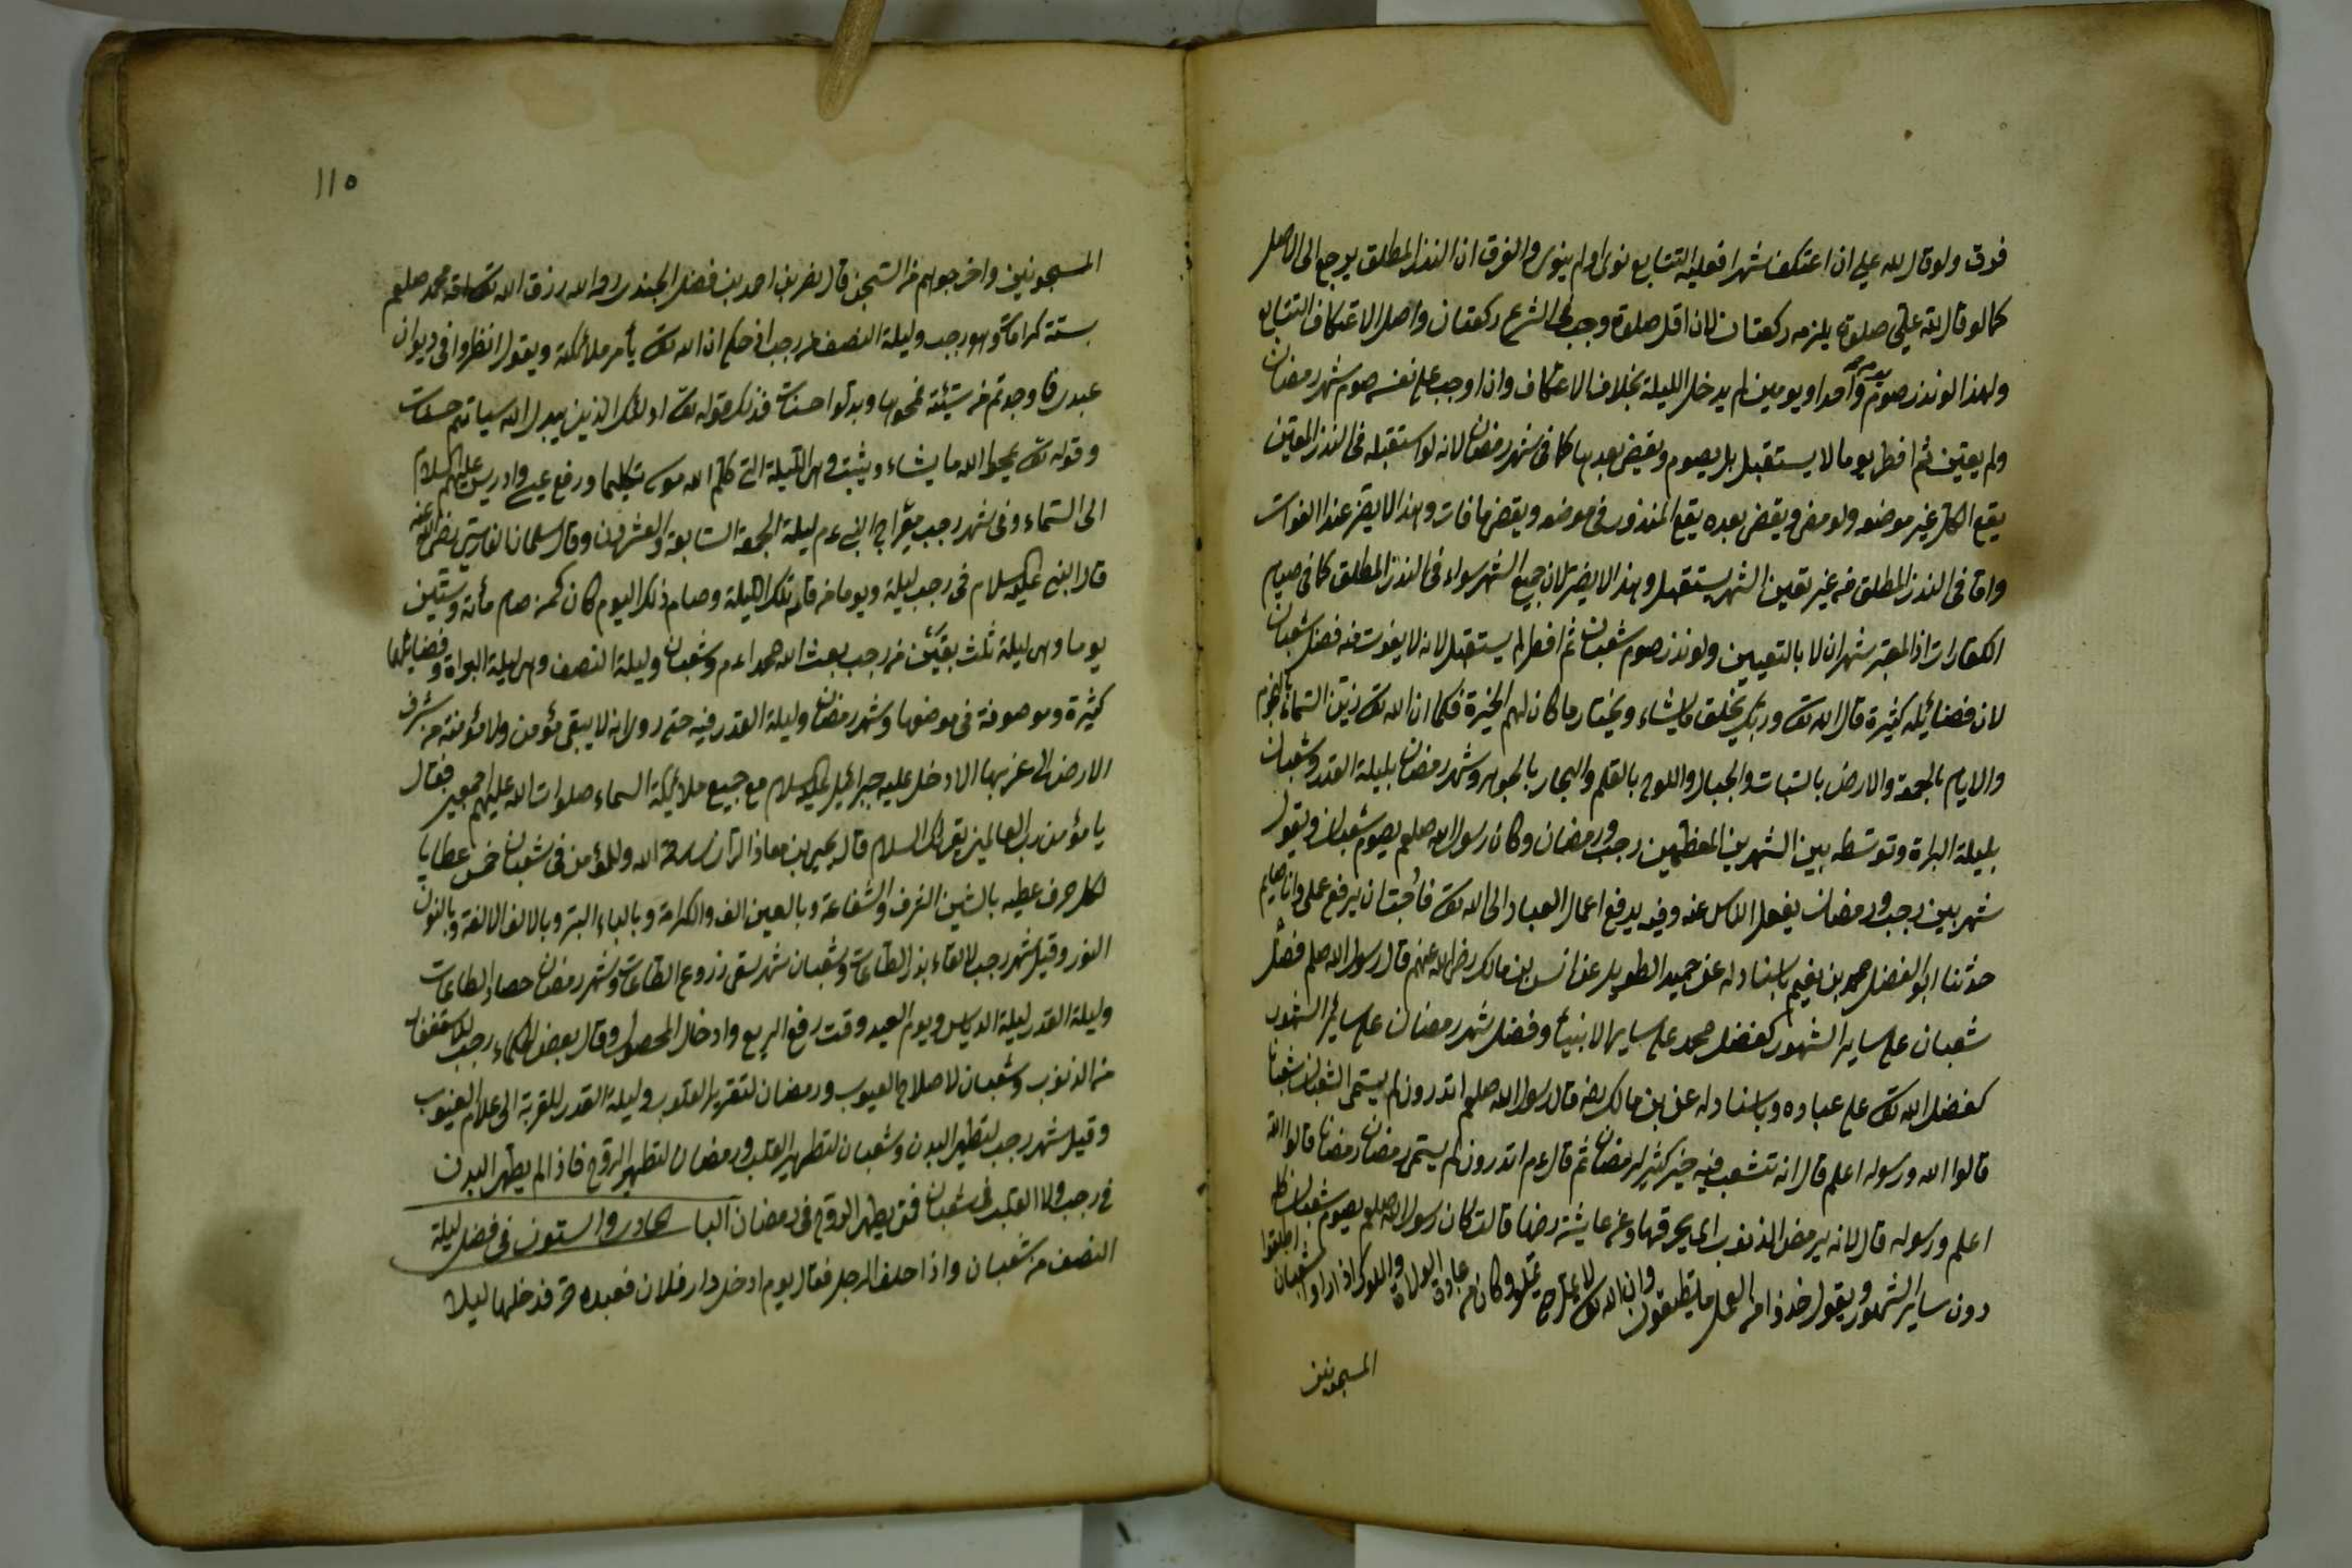 فوق ولو قال لله علي ان اعتكف شهرا فعليه التتابع نوى او لم ينوي والفرق ان النذر المطلق يرجع الى الاصل
كما لو قال لله علي صلوة يلزمه ركعتان لان اقل صلوة وجب في الشرع ركعتان واصل الاعتكاف التتابع
ولهذا لو نذر صوم يوم واحد او يومين لم يدخل الليلة بخلاف الاعتكاف وان اوجب على نفسه صوم شهر رمضان
ولم يعين ثم افطر يوما لا يستقبل بل يصوم ويقضي بعدها كما في شهر رمضان لانه لو استقبله في النذر المعين
يقع الكل غير موضعه ولو مضى ويقضي بعده يقع المنذور في موضعه ويقضي ما فات وهذا لا يضر عند الفوات
واما في النذر المطلق من غير تعين الشهر يستقبل وهذا لا يضر لان جميع الشهر سواء في النذر المطلق كما في صيام
الكفارات اذ المعتبر شهران لا بالتعيين ولو نذر صوم شعبان ثم افطر لم يستقبل لانه لا يفوت منه فضل شعبان
لان فضائله كثيرة قال الله تعالى وربك يخلق ما يشاء ويختار ما كان لهم الخيرة فكما ان الله تعالى زين السماء بالنجوم
والايام بالجمعة والارض بالنبات والجبال واللوح بالقلم والبحار بالجوهر وشهر رمضان بليلة القدر وشعبان
بليلة البراءة وتوسطه بين الشهرين المعظمين رجب ورمضان وكان رسول الله صلعم يصوم شعبان ويقول
شهر بين رجب ورمضان يغفل الناس عنه وفيه يرفع اعمال العباد الى الله تعالى فاحببت ان يرفع عملي وانا صايم
حدثنا ابو الفضل محمد بن نعيم باسناده عن حميد الطويل عن انس بن مالك رضي الله عنهم قال رسول الله صلعم فضل
شعبان على ساير الشهور كفضل محمد على ساير الانبياء وفضل شهر رمضان على سائر الشهور
كفضل الله تعالى على عباده وباسناده عن بن مالك رضه قال رسول الله صلعم اتدرون لم يسمى الشعبان شعبان
قالوا الله ورسوله اعلم قال انه تشعب فيه خير كثير لرمضان ثم قال عم اتدرون لم يسمى رمضان رمضانا قالوا الله
اعلم ورسوله قال لانه يرمض الذنوب اي يحرقها وعن عايشة رضها قالت كان رسول الله صلعم يصوم شعبان كله
دون ساير الشهور ويقول خذوا من العمل ما تطيقون وان الله تعالى لا يمل حتى تملوا وكان من عادة الولاة والملوك اذا راوا شعبان اطلقوا
المسجونين
١١٥
المسجونين واخرجوهم من السجن قال نصر بن احمد بن فضل الجندي رحه الله رزق الله تعالى امة محمد صلعم
ستة كرامات وهو رجب وليلة النصف من رجب اذ حكم ان الله تعالى يأمر ملائكة ويقول انظروا في ديوان
عبدي فما وجدتم من سيئة فمحوها وبدلوا حسنات فذلك قوله تعالى اولئك الذين يبدل الله سياتهم حسنات
وقوله تعالى يمحو الله ما يشاء ويثبت وهي الليلة التي كلم الله موسى تكليما ورفع عيسى وادريس عليهم السلام
الى السماء وفي شهر رجب معراج النبي عم ليلة الجمعة السابعة والعشرون وقال سلمان الفارسي رضى الله عنه
قال النبي عليه السلام في رجب ليلة ويوما من قام تلك الليلة وصام ذلك اليوم كان كمن صام مأنة وستين
يوما وهي ليلة ثلث بقين من رجب بعث الله محمدا عم وشعبان وليلة النصف وهي ليلة البراءة وفضايلها
كثيرة وموصوفة في موضعها وشهر رمضان وليلة القدر فيه حتى روى انه لا يبقى مؤمن ولا مؤمنة من شرق
الارض الى غربها الا دخل عليه جبرائيل عليه السلام مع جميع ملائكة السماء صلوات الله عليهم اجمعين فقال
يا مؤمن رب العالمين يقرئك السلام قال يحيى بن معاذ الرازي رحمة الله وللمؤمن في شعبان خمس عطايا
لكل حرف عطيه بالشين الشرف والشفاعة وبالعين العز والكرامة وبالباء البر وبالالف الالفة وبالنون
النور وقيل شهر رجب لالقاء بذر الطاعات وشعبان شهر سقى زروع الطاعات وشهر رمضان حصاد الطاعات
وليلة القدر ليلة الدياس ويوم العيد وقت رفع الريع وادخال المحصول وقال بعض الحكماء رجب للاستغفار
من الذنوب وشعبان لاصلاح العيوب ورمضان لتقرير القلوب وليلة القدر للقربة الى علام الغيوب
وقيل شهر رجب لتطهير البدن وشعبان لتطهير القلب ورمضان لتطهير الروح فاذا لم يطهر البدن
في رجب ولا القلب في شعبان فمتى يطهر الروح في رمضان الباب الحادي والستون في فضل ليلة
النصف من شعبان واذا حلف الرجل فقال يوم ادخل دار فلان فعبده حر فدخلها ليلا